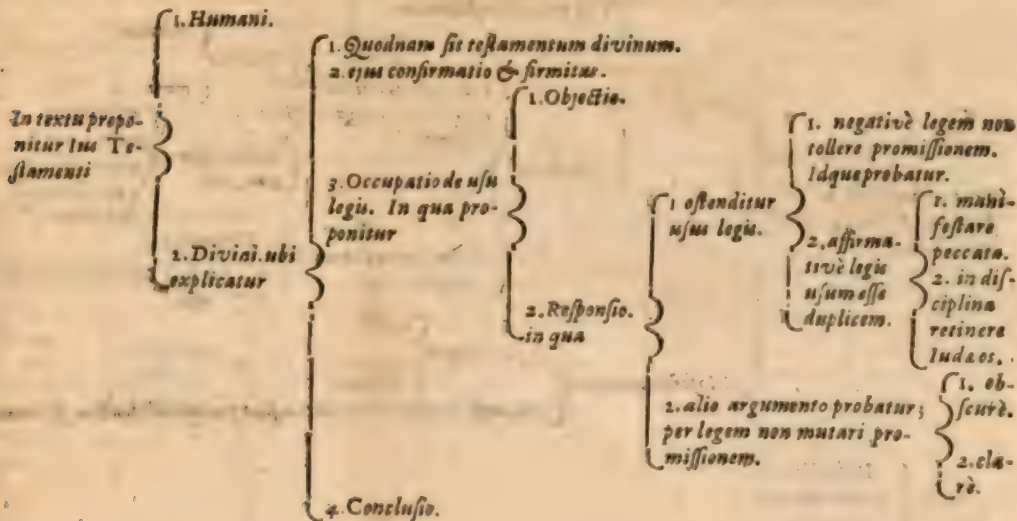 In textu propo-
nitur Ius Te-
ſtamenti
1. Humani.
2. Divini. ubi
explicatur
1. Quodnam ſit teſtamentum divinum.
2. ejus confirmatio & firmitas.
3. Occupatio de uſu
legis. In qua pro-
ponitur
1. Objectio.
2. Reſponſio.
in qua
1 oſtenditur
uſus legis.
1. negativè legem non
tollere promiſſionem.
Idque probatur.
2. affirma-
tivè legis
uſum eſſe
duplicem.
1. mani-
feſtare
peccata.
2. in diſ-
ciplina
retinere
Iudæos.
2. alio argumento probatur;
per legem non mutari pro-
miſſionem.
1. ob-
ſcurè.
2. cla-
rè.
4. Concluſio.